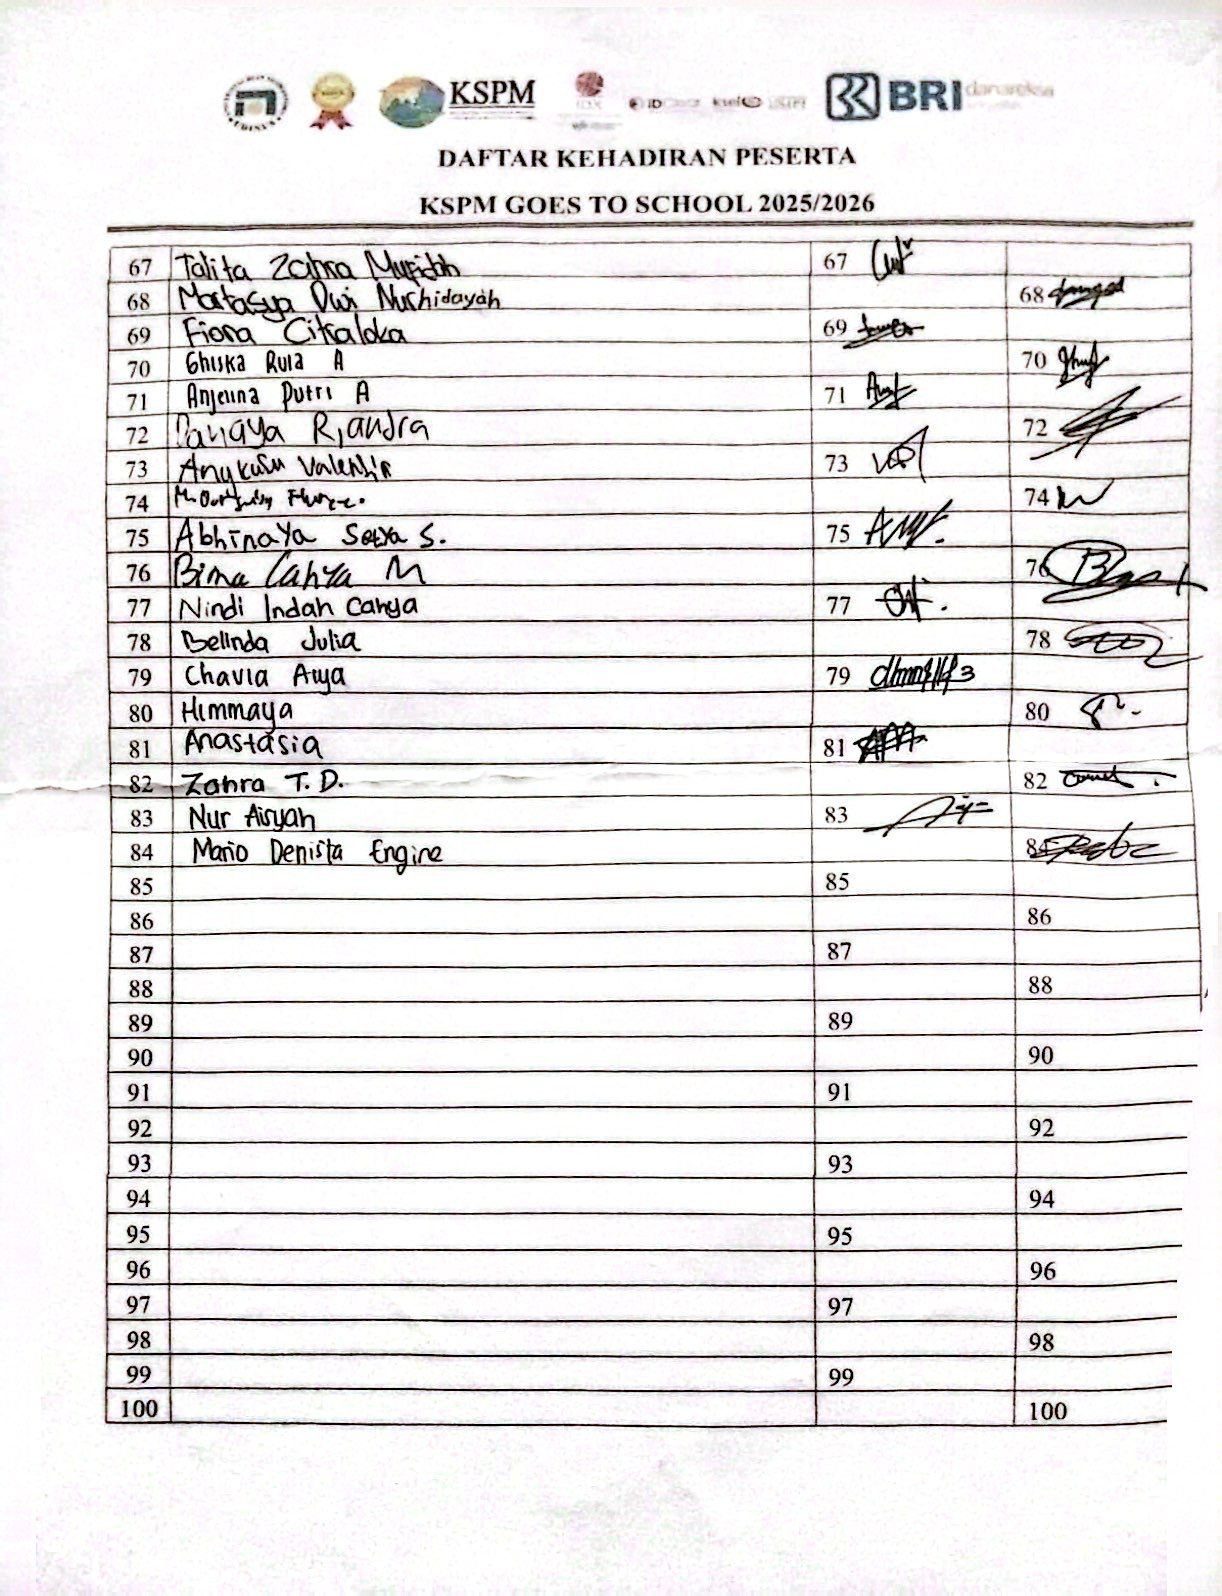 UDINUS
KSPM
IDX
BRI danareksa
DAFTAR KEHADIRAN PESERTA
KSPM GOES TO SCHOOL 2025/2026
67 Talita Zahra Mufidah 67
68 Martasya Dwi Nurhidayah 68
69 Fiora Citraloka 69
70 Ghiska Rula A 70
71 Anjelina Putri A 71
72 Canaya Riandra 72
73 Angkasa Valentin 73
74 74
75 Abhinaya Setya S. 75
76 Bima Cahya M 76
77 Nindi Indah Cahya 77
78 Belinda Julia 78
79 Chavia Arya 79
80 Himmaya 80
81 Anastasia 81
82 Zahra T. D. 82
83 Nur Aisyah 83
84 Mario Denista Engine 84
85 85
86 86
87 87
88 88
89 89
90 90
91 91
92 92
93 93
94 94
95 95
96 96
97 97
98 98
99 99
100 100